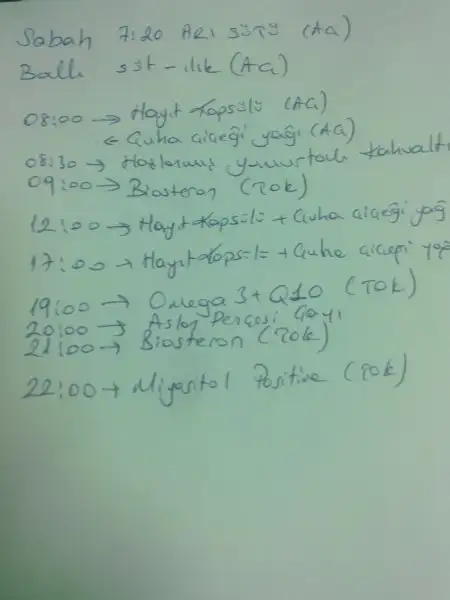 Sabah 7:20 ARI SÜTÜ (Aç)
Ballı süt - ılık (Aç)
08:00 → Hayıt Kapsülü (Aç)
← Çuha çiçeği yağı (Aç)
08:30 → Haşlanmış yumurtalı kahvaltı
09:00 → Biosteron (Tok)
12:00 → Hayıt Kapsülü + Çuha çiçeği yağ
17:00 → Hayıt Kapsülü + Çuha çiçeği yağ
19:00 → Omega 3 + Q10 (Tok)
20:00 → Aslan Pençesi Çayı
21:00 → Biosteron (Tok)
22:00 → Miyositol Positive (Tok)